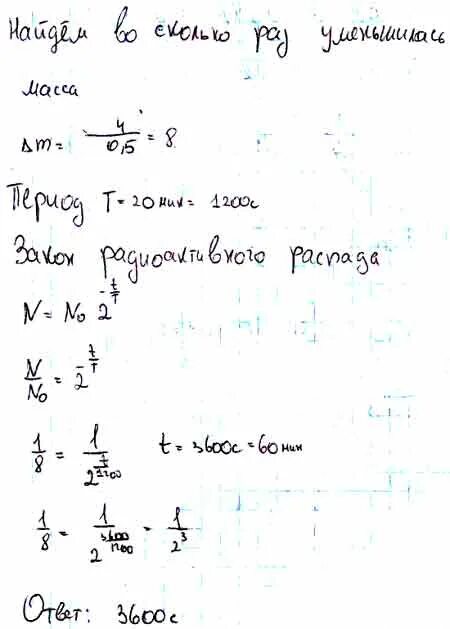 Найдём во сколько раз уменьшилась
масса
Δm = 4/0,5 = 8
Период T = 20 мин = 1200с
Закон радиоактивного распада
N = N₀ 2^(-t/T)
N/N₀ = 2^(-t/T)
1/8 = 1/2^(t/1200) t = 3600с = 60 мин
1/8 = 1/2^(3600/1200) = 1/2³
Ответ: 3600с